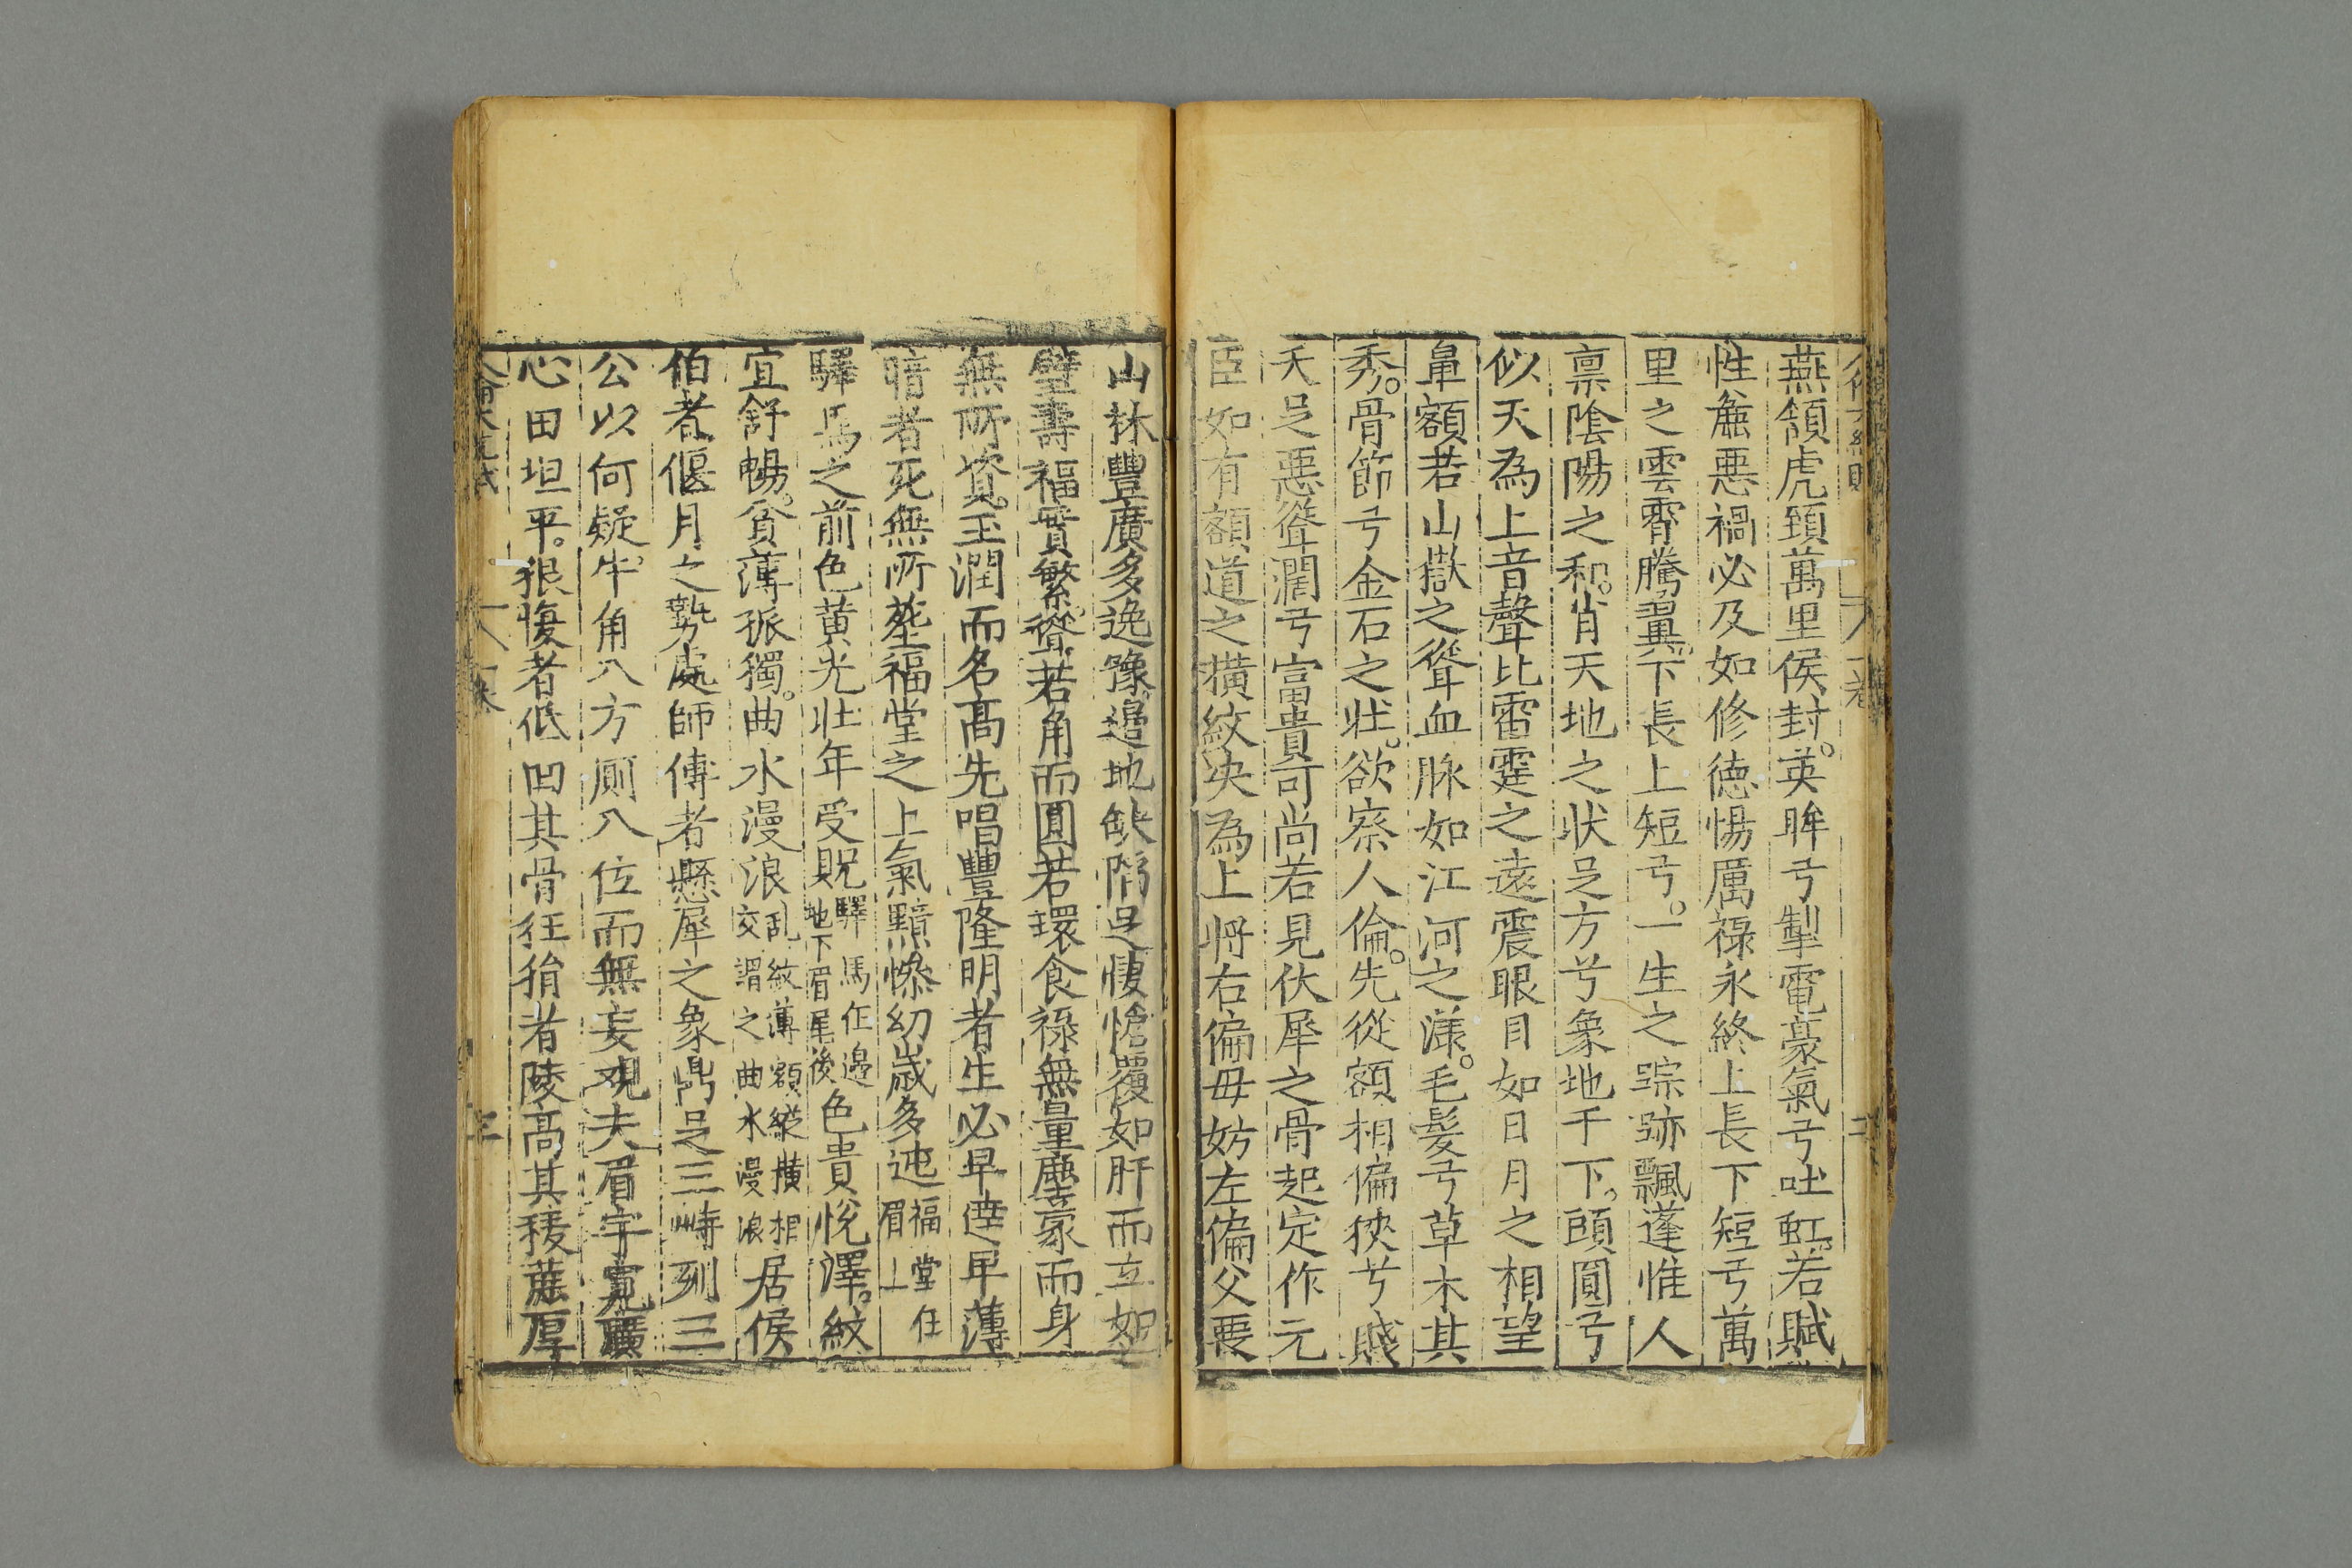 燕頷虎頭萬里侯封英眸兮掣電豪氣兮吐虹若賦
性麁惡禍必及如修德惕厲祿永終上長下短兮萬
里之雲霄騰翼下長上短兮一生之踪跡飄蓬惟人
禀陰陽之和肖天地之状足方兮象地于下頭圓兮
似天為上音聲比雷霆之遠震眼目如日月之相望
鼻額若山嶽之聳血脉如江河之漾毛髮兮草木其
秀骨節兮金石之壮欲察人倫先從額相偏狹兮賤
夭足惡聳濶兮富貴可尚若見伏犀之骨起定作元
臣如有額道之橫紋决為上將右偏母妨左偏父喪
山林豐廣多逸豫邉地缺陷足悽愴覆如肝而立如
璧壽福實繁聳若角而圓若環食祿無量塵蒙而身
無所資玉潤而名髙先唱豐隆明者生必早逹早薄
暗者死無所塟福堂之上氣黯慘幻歳多迍福堂在
眉上
驛馬之前色黄光壮年受貺驛馬在邉
地下眉尾後色貴悅澤紋
宜舒暢貧薄孤獨曲水漫浪乱紋薄額縱橫相
交謂之曲水漫浪居侯
伯者偃月之勢處師傅者懸犀之象鼎足三峙列三
公以何疑牛角八方厠八位而無妄观夫眉宇寬曠
心田坦平狠愎者低凹其骨狂狷者陵髙其稜薦厚